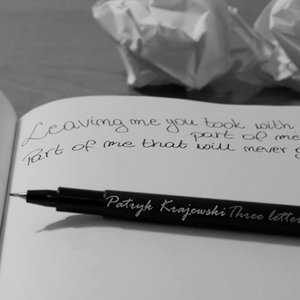 Leaving me you took with
part of me
Part of me that will never
Patryk Krajewski Three letter